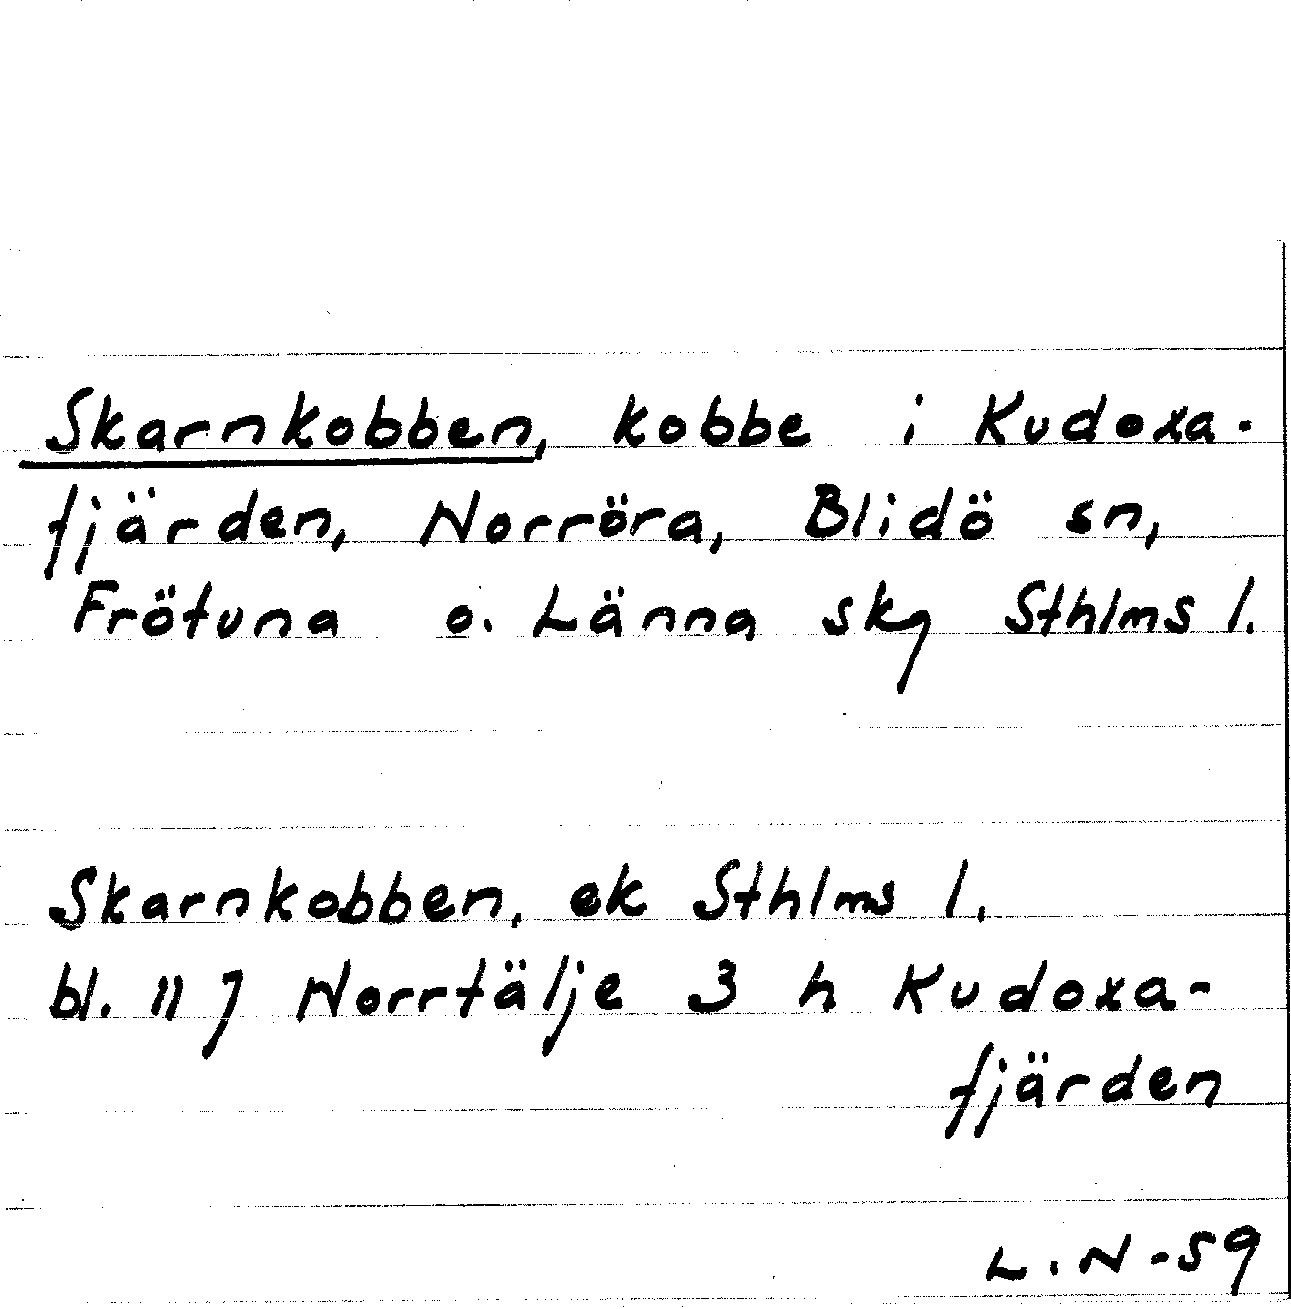 Skarnkobben, kobbe i Kudoxa-
fjärden, Norröra, Blidö sn,
Frötuna o. Länna skg Sthlms l.
Skarnkobben, ek Sthlms l.
bl. 11 J Norrtälje 3 h Kudoxa-
fjärden
L.N-59